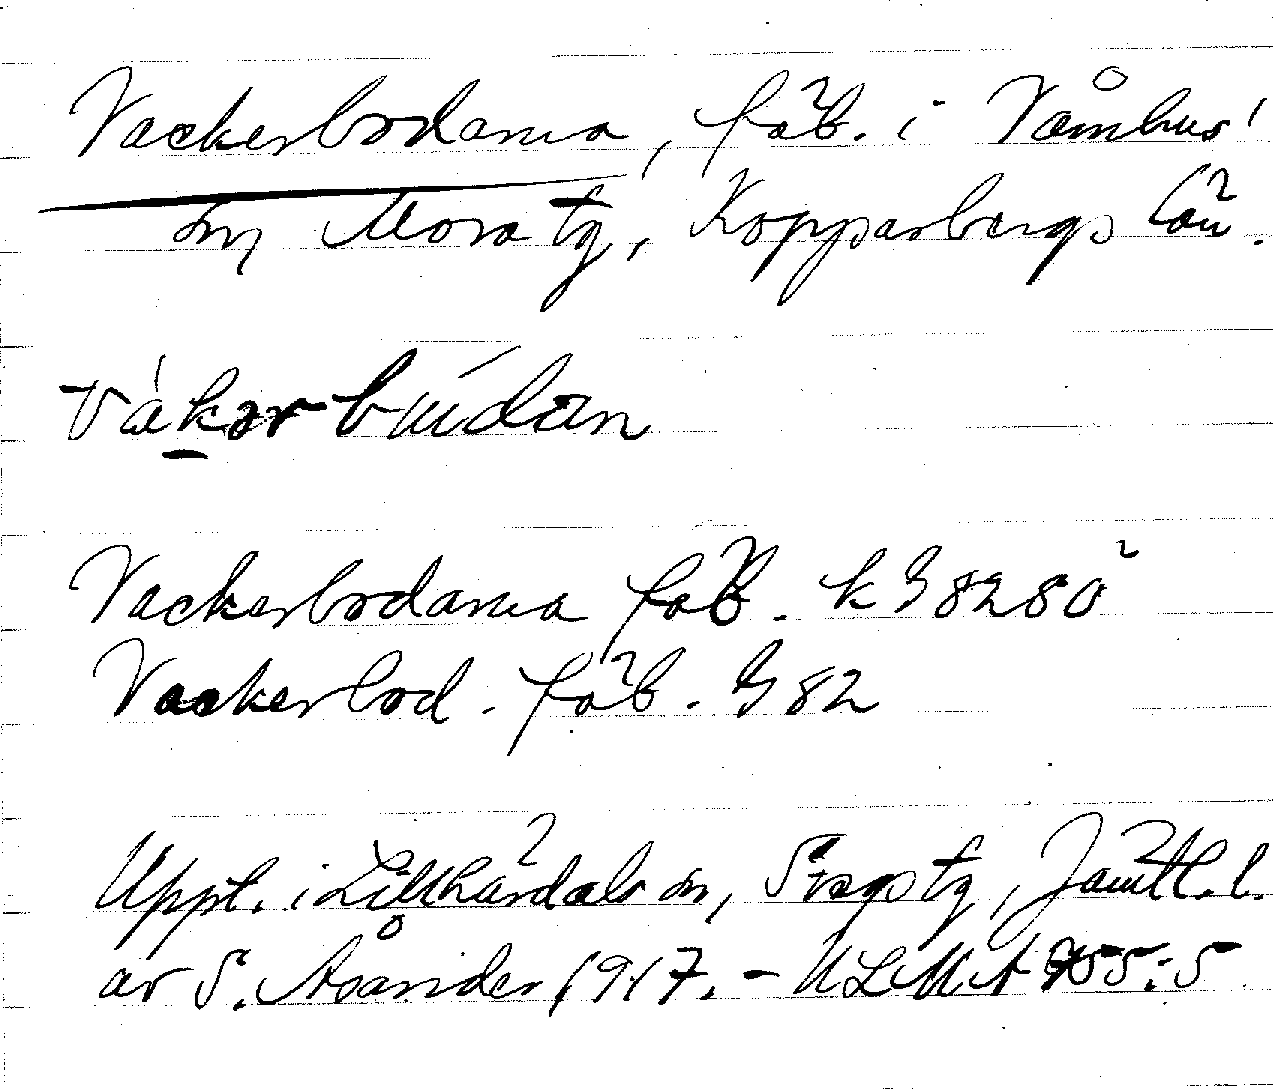 Vackerbodarna, fäb. i Våmhus'
sn, Mora tg, Kopparbergs län.
vàkərbúdan
Vackerbodarna fäb. k G 8280²
Vackerbod. fäb. G 82
Uppt. i Lillhärdals sn, Svegs tg, Jämtl. l.
av S. Åsander 1917. – ULMA 955:5